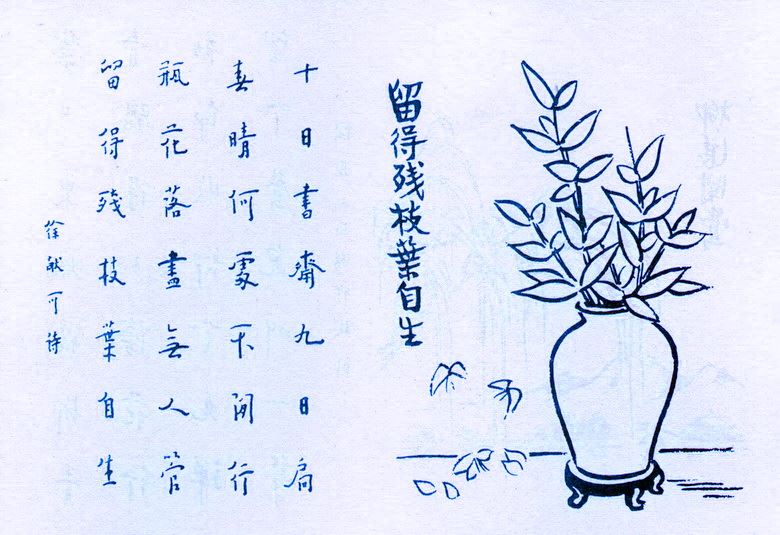 留得残枝葉自生
十日書齋九日扃
春晴何處不閒行
瓶花落盡無人管
留得殘枝葉自生
徐献可詩